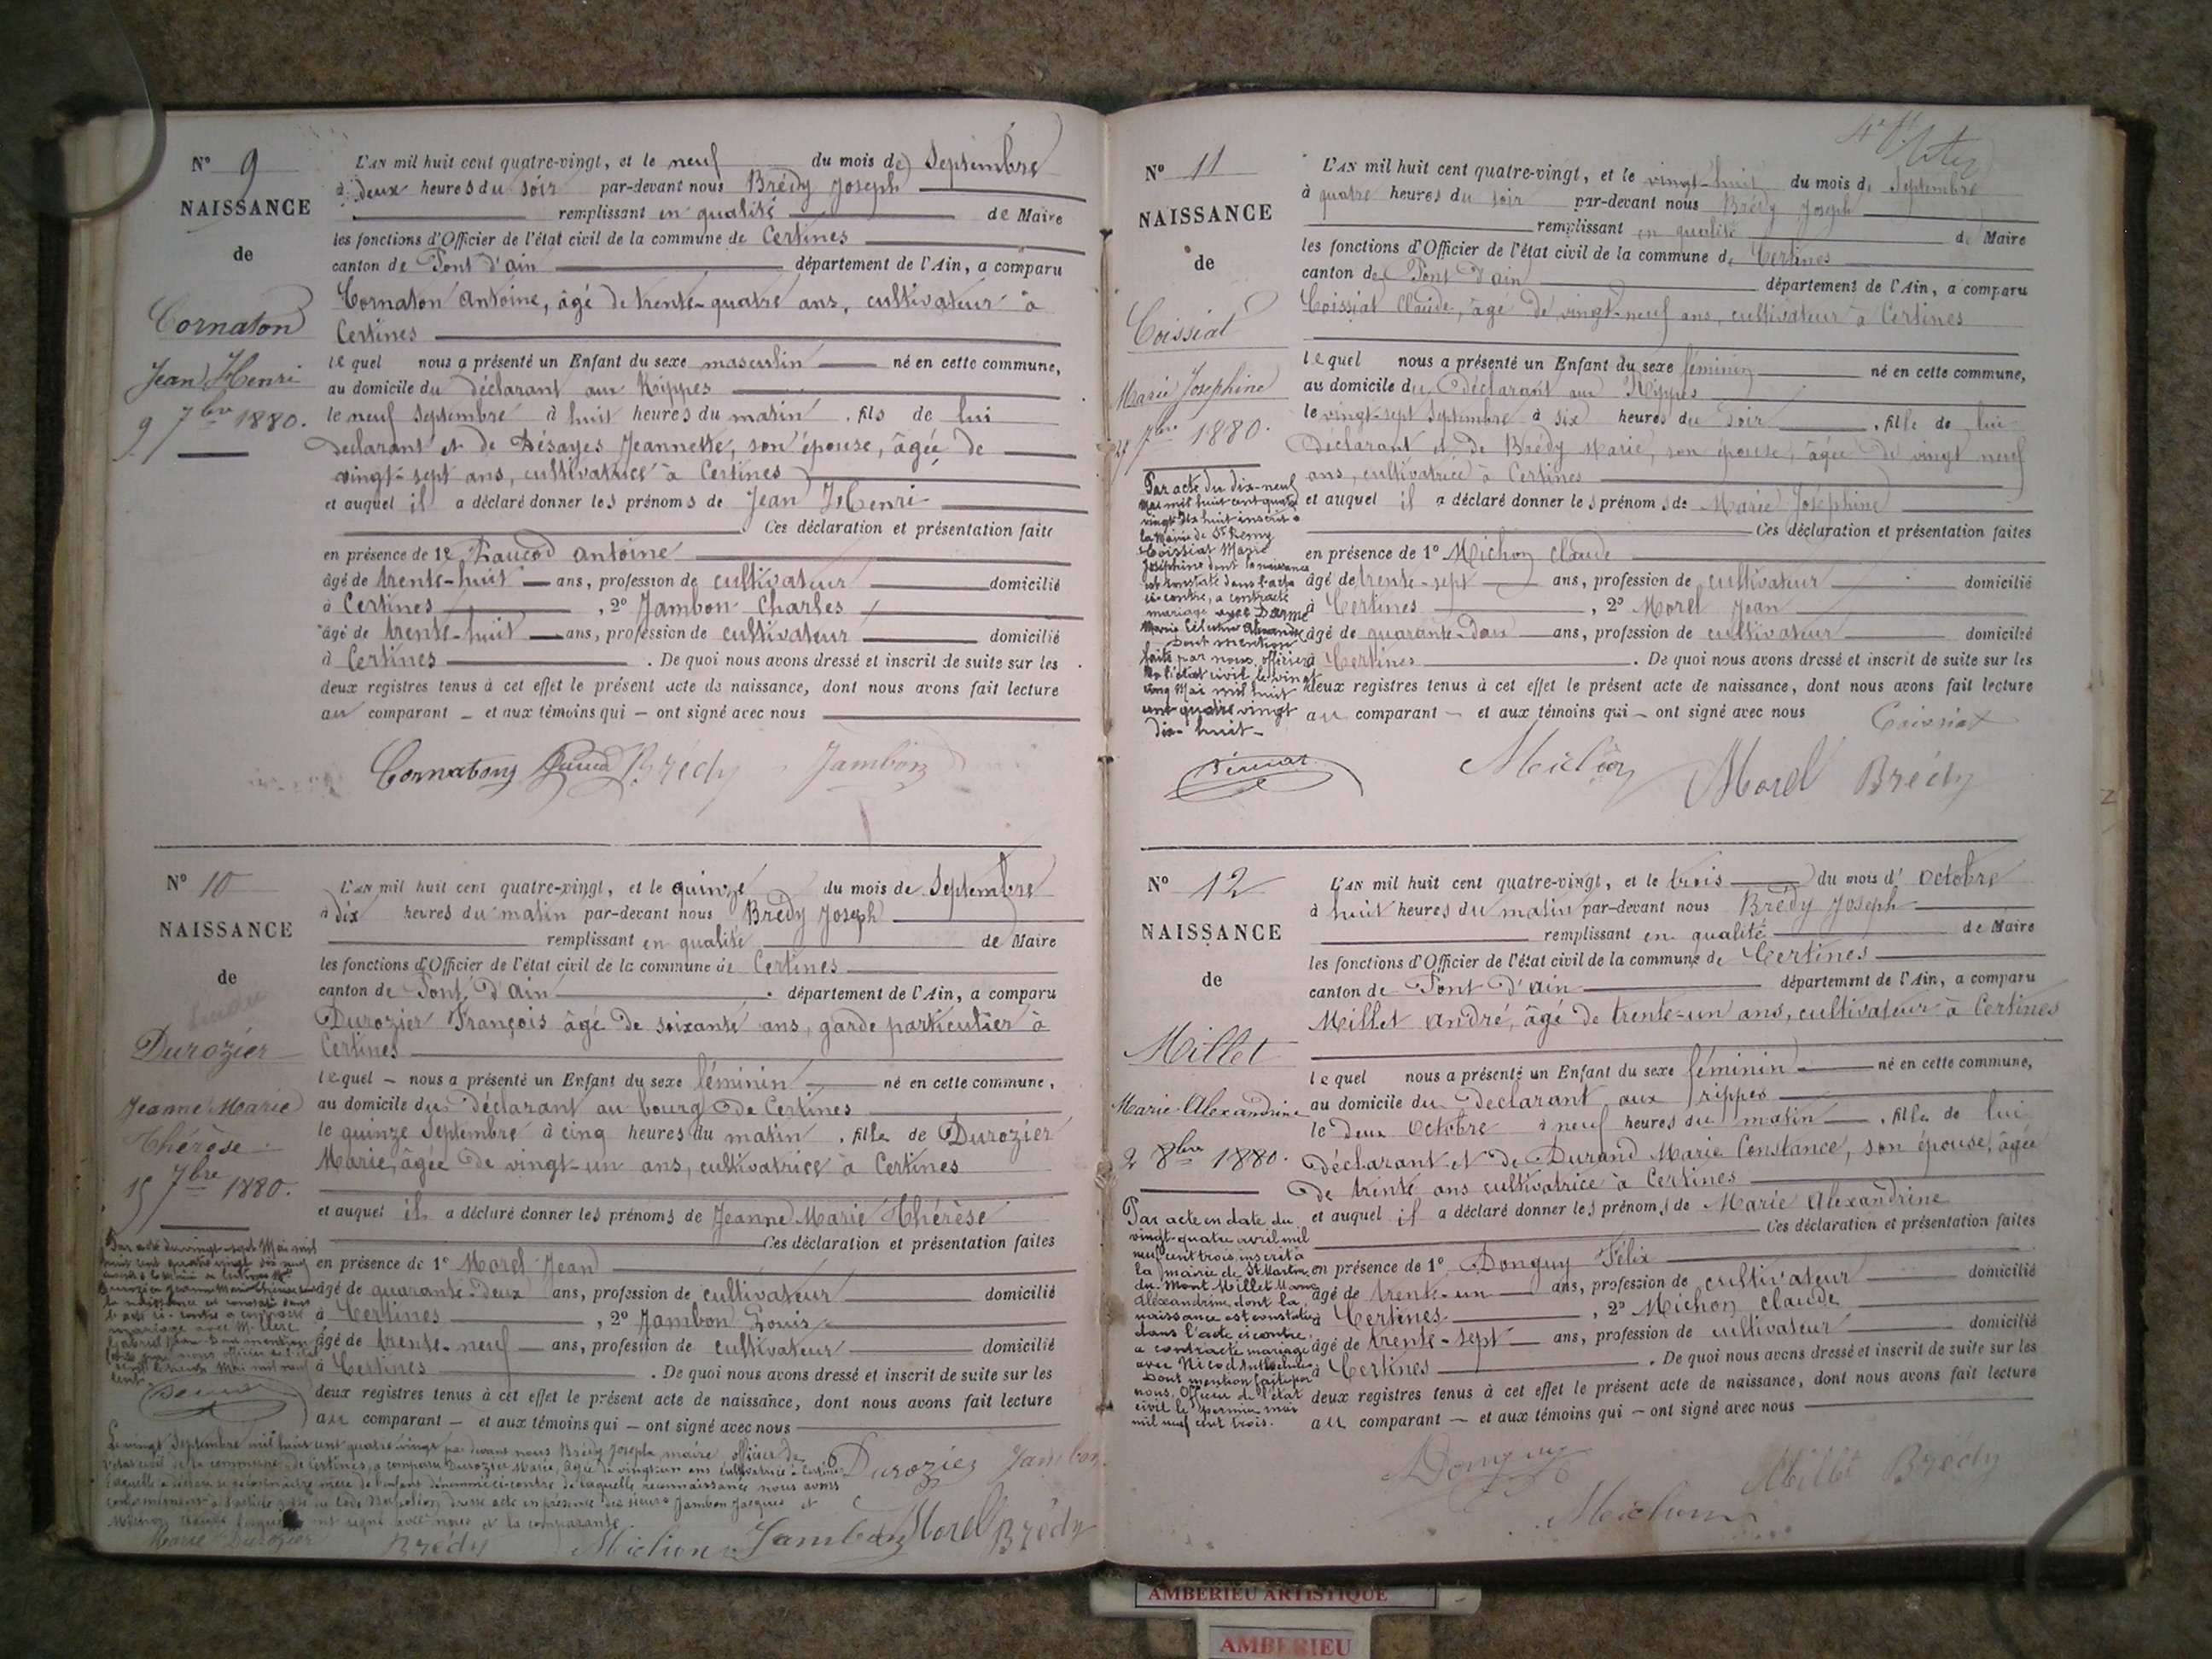 N° 9
NAISSANCE
de
Cornaton
Jean Henri
9 7bre 1880.
L'AN mil huit cent quatre-vingt, et le neuf du mois de Septembre
à deux heures du soir par-devant nous Brédy Joseph
remplissant en qualité de Maire
les fonctions d'Officier de l'état civil de la commune de Certines
canton de Pont d'ain département de l'Ain, a comparu
Cornaton Antoine, âgé de trente-quatre ans, cultivateur à
Certines
lequel nous a présenté un Enfant du sexe masculin né en cette commune,
au domicile du déclarant aux Rippes
le neuf Septembre à huit heures du matin, fils de lui
déclarant et de Désayes Jeannette, son épouse, âgée de
vingt-sept ans, cultivatrice à Certines
et auquel il a déclaré donner les prénoms de Jean Henri
Ces déclaration et présentation faite
en présence de 1° antoine
âgé de trente-huit ans, profession de cultivateur domicilié
à Certines, 2° Jambon Charles
âgé de trente-huit ans, profession de cultivateur domicilié
à Certines. De quoi nous avons dressé et inscrit de suite sur les
deux registres tenus à cet effet le présent acte de naissance, dont nous avons fait lecture
au comparant – et aux témoins qui – ont signé avec nous
Cornaton Brédy Jambon
N° 10
NAISSANCE
de
Durozier
Jeanne Marie
Thérèse
15 7bre 1880.
L'AN mil huit cent quatre-vingt, et le quinze du mois de Septembre
à dix heures du matin par-devant nous Brédy Joseph
remplissant en qualité de Maire
les fonctions d'Officier de l'état civil de la commune de Certines
canton de Pont d'ain département de l'Ain, a comparu
Durozier François âgé de soixante ans, garde particulier à
Certines
lequel – nous a présenté un Enfant du sexe féminin né en cette commune,
au domicile du déclarant au bourg de Certines
le quinze Septembre à cinq heures du matin, fille de Durozier
Marie, âgée de vingt-un ans, cultivatrice à Certines
et auquel il a déclaré donner les prénoms de Jeanne Marie Thérèse
Ces déclaration et présentation faites
en présence de 1° Morel Jean
âgé de quarante-deux ans, profession de cultivateur domicilié
à Certines, 2° Jambon Louis
âgé de trente-neuf ans, profession de cultivateur domicilié
à Certines. De quoi nous avons dressé et inscrit de suite sur les
deux registres tenus à cet effet le présent acte de naissance, dont nous avons fait lecture
au comparant – et aux témoins qui – ont signé avec nous
Par acte du vingt-sept Mai mil
huit cent quatre vingt dix neuf
la naissance est constatée dans
l'acte ci-contre a contracté
mariage avec M. Clerc
Gabriel Dont mention
faite par nous officier de l'état
civil Mai mil neuf
cent
Le vingt Septembre mil huit cent quatre vingt par devant nous Brédy Joseph, maire officier de
l'état civil de la commune de Certines, a comparu Durozier Marie, âgée de vingt-un ans cultivatrice à Certines
laquelle a déclaré se reconnaître mère de l'enfant dénommé ci-contre de laquelle reconnaissance nous avons
conformément à l'article du Code Napoléon dressé acte en présence des sieurs Jambon Jacques et
Michon Claude lesquels ont signé avec nous et la comparante
Durozier Jambon
Marie Durozier Brédy Michon Jambon Morel Brédy
N° 11
NAISSANCE
de
Coissiat
Marie Joséphine
27 7bre 1880.
L'AN mil huit cent quatre-vingt, et le vingt-huit du mois de Septembre
à quatre heures du soir par-devant nous Brédy Joseph
remplissant en qualité de Maire
les fonctions d'Officier de l'état civil de la commune de Certines
canton de Pont d'ain département de l'Ain, a comparu
Coissiat Claude, âgé de vingt-neuf ans, cultivateur à Certines
lequel nous a présenté un Enfant du sexe féminin né en cette commune,
au domicile du déclarant aux Rippes
le vingt-sept Septembre à six heures du soir, fille de lui
déclarant et de Brédy Marie, son épouse, âgée de vingt neuf
ans, cultivatrice à Certines
et auquel il a déclaré donner les prénoms de Marie Joséphine
Ces déclaration et présentation faites
en présence de 1° Michon Claude
âgé de trente-sept ans, profession de cultivateur domicilié
à Certines, 2° Morel Jean
âgé de quarante-deux ans, profession de cultivateur domicilié
à Certines. De quoi nous avons dressé et inscrit de suite sur les
deux registres tenus à cet effet le présent acte de naissance, dont nous avons fait lecture
au comparant – et aux témoins qui – ont signé avec nous
Par acte du dix-neuf
Mai mil huit cent quatre
vingt dix huit inscrit à
la Mairie de St Remy
Coissiat Marie
Joséphine dont la naissance
est constatée dans l'acte
ci-contre, a contracté
mariage avec Darme
Marie Célestin Alexandre
Dont mention
faite par nous, officier
de l'état civil le vingt
cinq Mai mil huit
cent quatre vingt
dix-huit
Coissiat
Michon Morel Brédy
N° 12
NAISSANCE
de
Millet
Marie Alexandrine
2 8bre 1880.
L'AN mil huit cent quatre-vingt, et le trois du mois d'octobre
à huit heures du matin par-devant nous Brédy Joseph
remplissant en qualité de Maire
les fonctions d'Officier de l'état civil de la commune de Certines
canton de Pont d'ain département de l'Ain, a comparu
Millet André, âgé de trente-un ans, cultivateur à Certines
lequel nous a présenté un Enfant du sexe féminin né en cette commune,
au domicile du déclarant aux rippes
le deux Octobre à neuf heures du matin, fille de lui
déclarant et de Durand Marie Constance, son épouse, âgée
de trente ans cultivatrice à Certines
et auquel il a déclaré donner les prénoms de Marie Alexandrine
Ces déclaration et présentation faites
en présence de 1° Donguy Félix
âgé de trente-un ans, profession de cultivateur domicilié
à Certines, 2° Michon Claude
âgé de trente-sept ans, profession de cultivateur domicilié
à Certines. De quoi nous avons dressé et inscrit de suite sur les
deux registres tenus à cet effet le présent acte de naissance, dont nous avons fait lecture
au comparant – et aux témoins qui – ont signé avec nous
Par acte en date du
vingt-quatre avril mil
neuf cent trois, inscrit à
la mairie de St Martin
du Mont Millet Marie
Alexandrine, dont la
naissance est constatée
dans l'acte ci contre,
a contracté mariage
avec Nicod
Dont mention faite par
nous, Officier de l'état
civil le premier mai
mil neuf cent trois.
Donguy Millet Brédy
Michon
AMBERIEU ARTISTIQUE
AMBERIEU